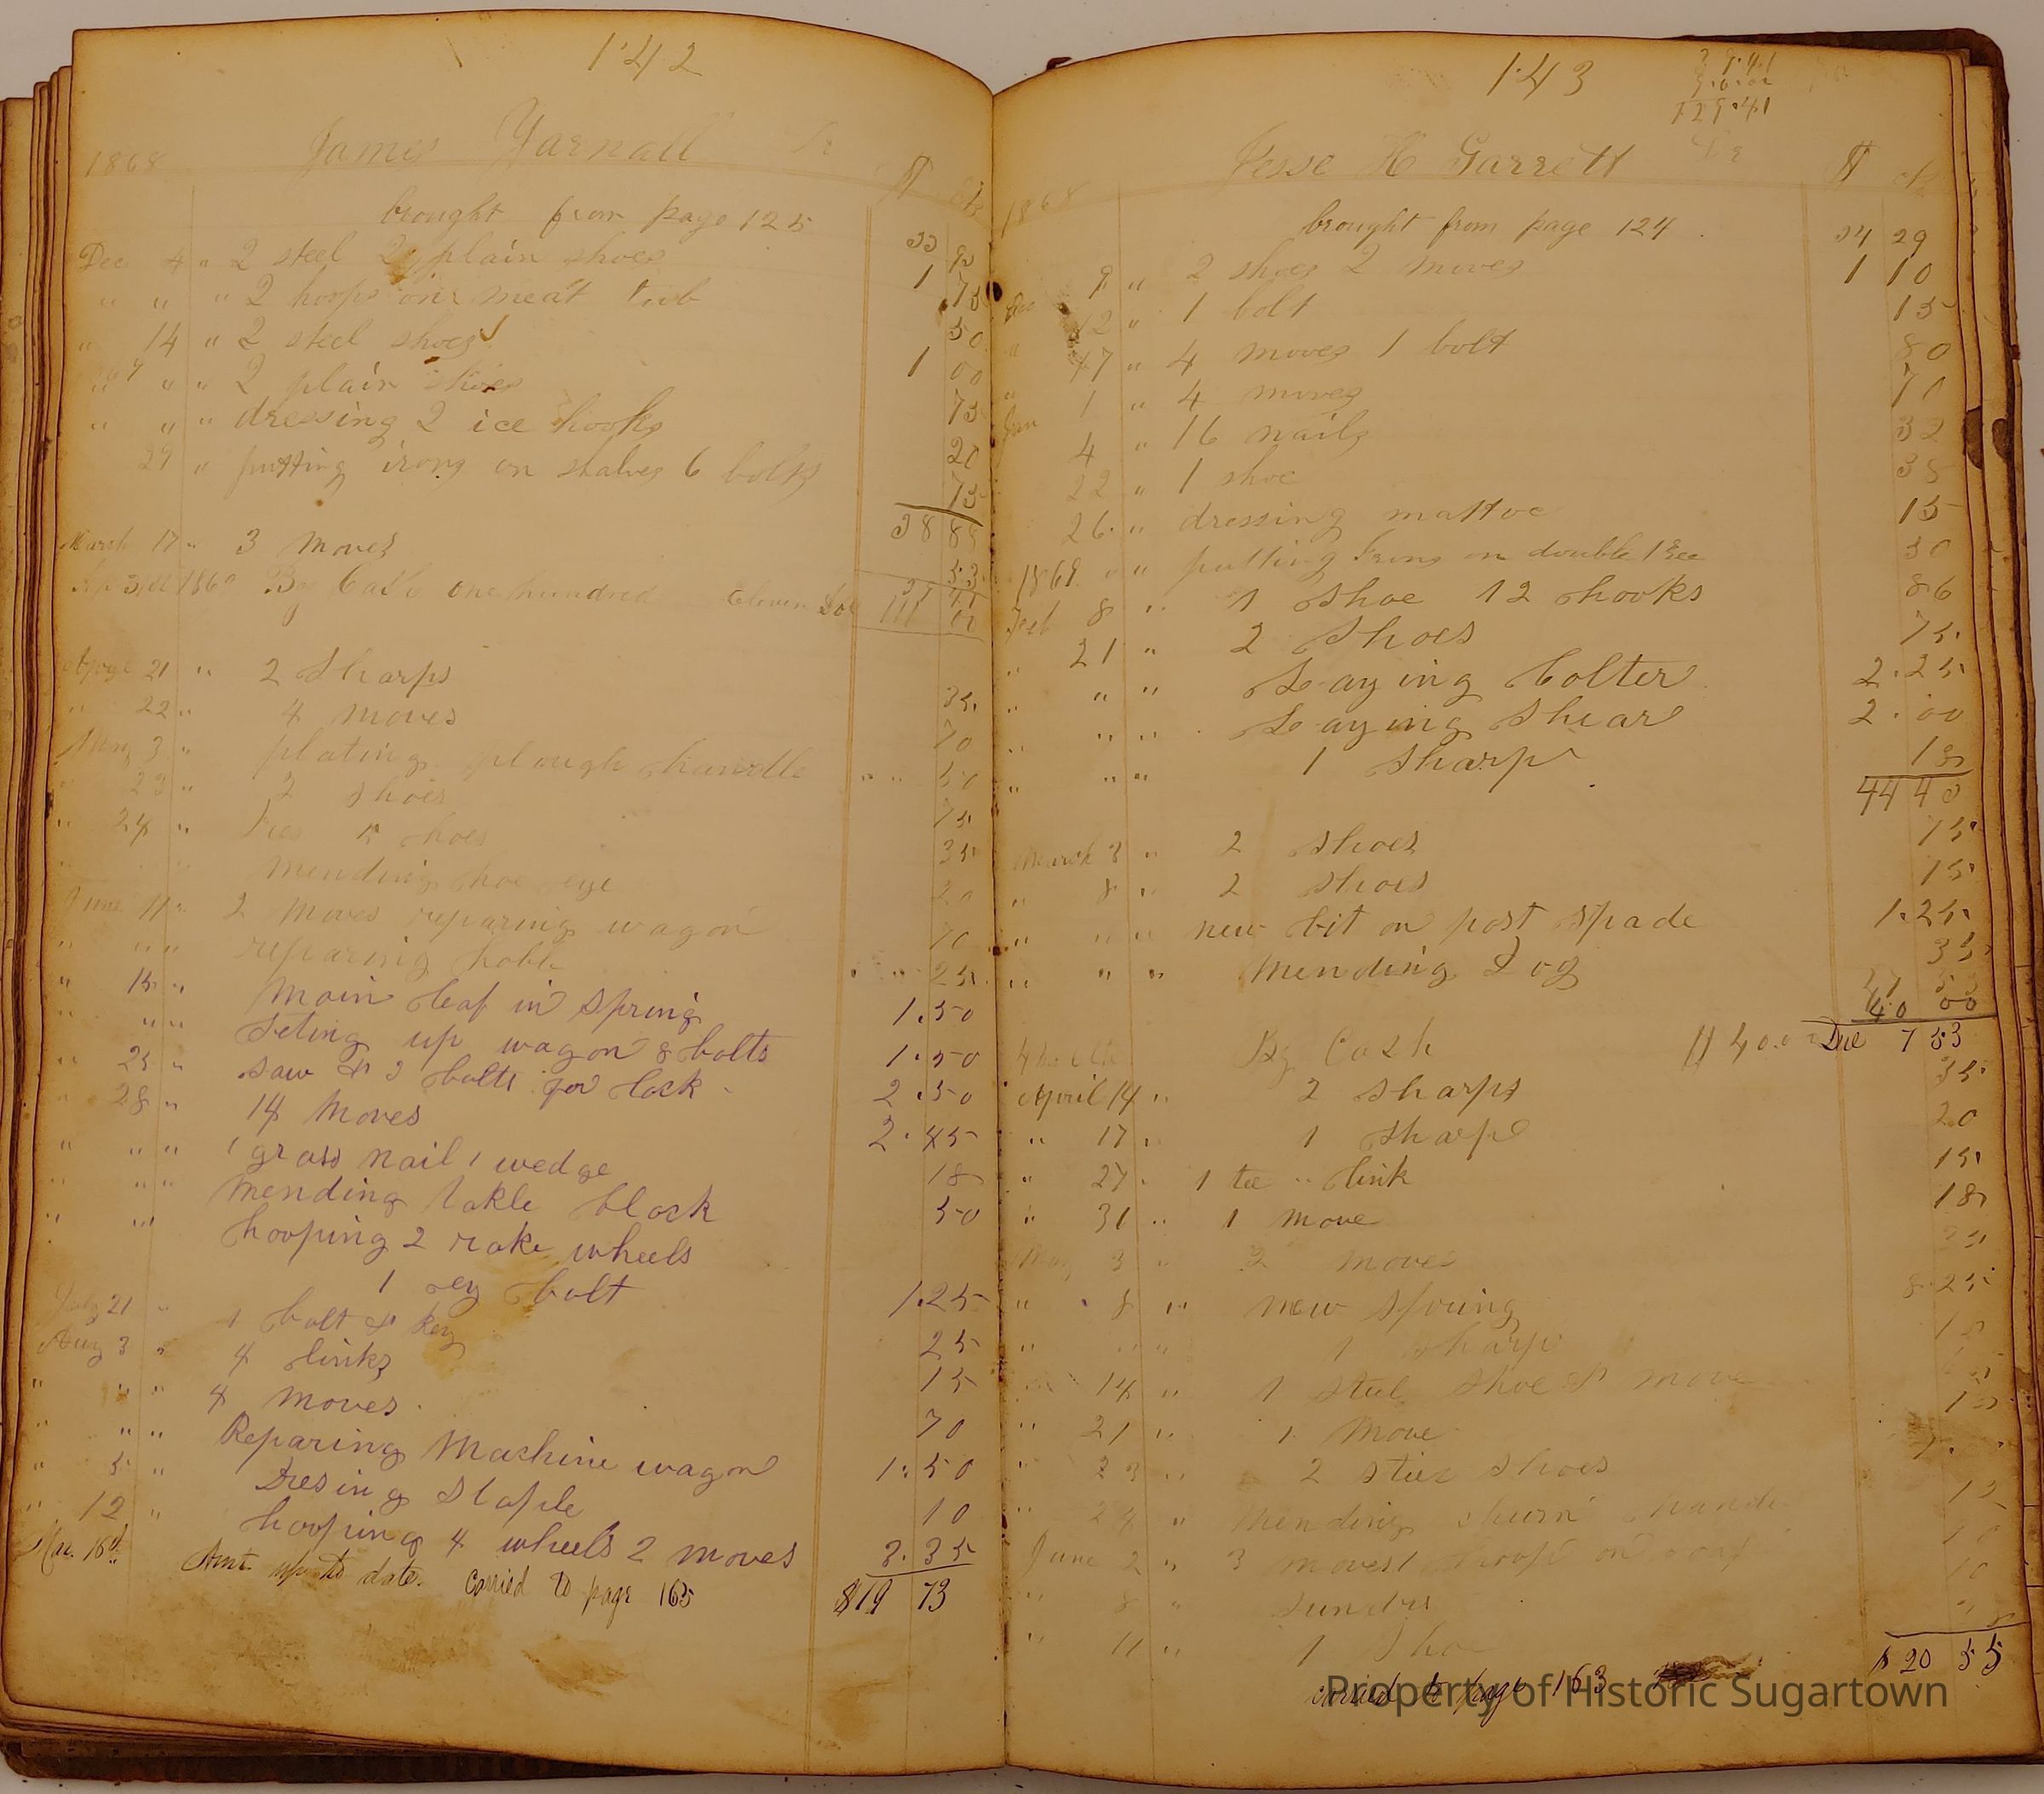 142
1868 James Yarnall Dr
brought from page 125
Dec 4 " 2 steel 2 plain shoes 1 75
" " " 2 hoops on meat tub 50
" 14 " 2 steel shoes 1 00
" " " 2 plain shoes 75
" " " dressing 2 ice hooks 20
29 " putting irons on shalves 6 bolts 75
38 88
March 17 " 3 moves 53
By Cash one hundred Eleven Dol 111 00
21 " 2 Sharps 35
" 22 " 4 moves 70
May 3 " plating plough handle " " 50
" 23 " 2 shoes 75
" 24 " shoes 35
mending hoe eye 20
June 11 " 2 moves reparing wagon 70
" " " reparing 25
" 15 " Main leaf in spring 1.50
" " " seting up wagon 8 bolts 1.50
" 25 " saw & 2 bolts for lock 2.50
" 28 " 14 moves 2.45
" " " 1 grass nail 1 wedge 18
" " " mending takle block 50
" " " hooping 2 rake wheels
1 ey bolt 1.25
July 21 " 1 bolt & key 25
Aug 3 " 4 links 15
" " " 4 moves 70
" " " Reparing Machine wagon 1.50
" 5 " Dresing staple 10
" 12 " hooping 4 wheels 2 moves 3.35
Amt up to date. Carried to page 165 $19 73
143
129.41
1868 Jesse H Garrett Dr
brought from page 124 34 29
Dec 9 " 2 shoes 2 moves 1 10
" 12 " 1 bolt 15
" 17 " 4 moves 1 bolt 80
Jan 1 " 4 moves 70
4 " 16 nails 32
22 " 1 shoe 38
26 " dressing mattoc 15
1869 " " putting Irons on double tree 30
Feb 8 " 1 shoe 12 hooks 86
" 21 " 2 shoes 75
" " " Laying Colter 2.25
" " " Laying shear 2.00
" " " 1 sharp 18
44 40
March 3 " 2 shoes 75
" 8 " 2 shoes 75
" " " new bit on post spade 1.25
" " " mending Dog 35
By Cash 40 00
Due 7 53
April 14 " 2 sharps 35
" 17 " 1 sharp 20
" 27 " 1 link 15
" 31 " 1 move 18
May 3 " 2 moves 35
" 8 " new spring 8.25
" " " 1 sharp
" 14 " 1 steel shoe & move
" 21 " 1 move
" 23 " 2 shoes
" 24 " mending
June 2 " 3 moves
" 8 " sundri
" 11 " 1 sho
$ 20 55
carried to page 163
Property of Historic Sugartown